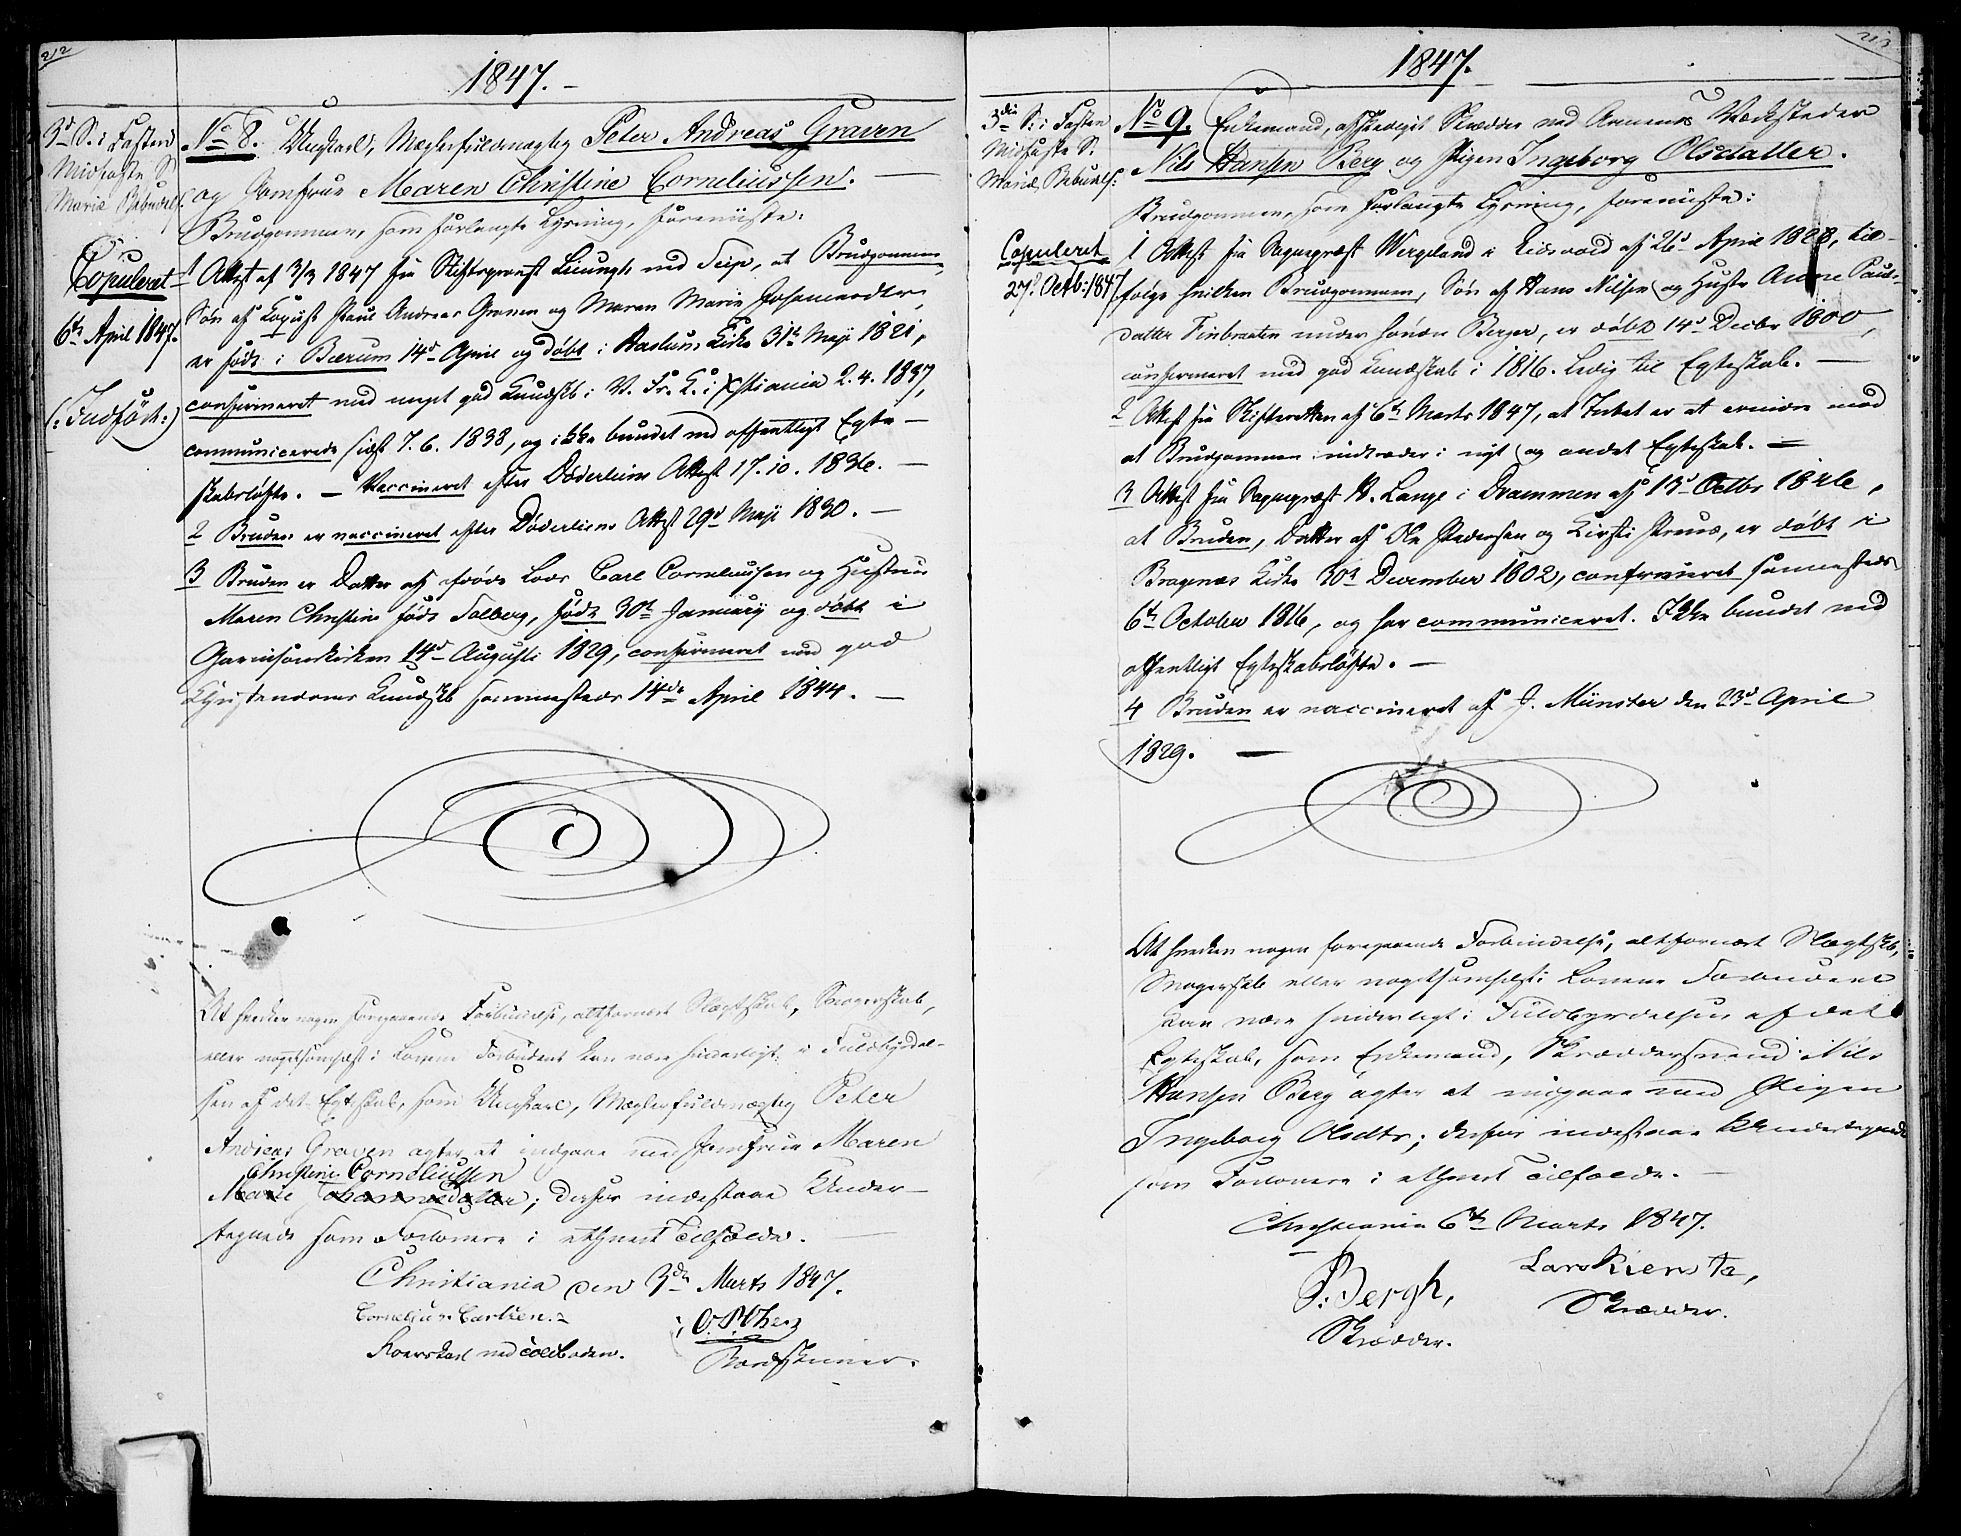 212
1847.-
3d S. i Fasten
Midfaste S.
Mariæ Bebudels.
Copuleret
6te April 1847.
(: Indført :)
No 8. Ungkarl, Mæglerfuldmægtig Peter Andreas Graven
og Jomfrue Maren Christine Corneliussen. —
Brudgommen, som forlangte Lysning, foreviiste:
1 Attest af 3/3 1847 fra Stiftsprovst ved at Brudgommen,
Søn af Povel Andreas Graven og Maren Marie
er født i Bærum 14d April og døbt i Haslum Kirke 31te Maji 1821,
confirmeret med meget god Kundskb i V. Fr. K. i Xstiania 2.4.1837,
communicerede sidst 7.6.1838, og ikke bundet ved offentligt Egte-
skabsløfte. — Vaccineret efter Døderleins Attest 17.10.1836. —
2 Bruden er vaccineret efter Døderleins Attest 29d Maji 1830. —
3 Bruden er Datter af Carl Corneliussen og Hustrue
Maren Christine født Solberg, født 30te Januarij og døbt i
Garnisonskirken 14d Augusti 1829, confirmeret med god
Christendoms Kundskb sammesteds 14de April 1844. —
At hverken nogen foregaaende Forbindelse, altfornært Slægtskab, Svogerskab,
eller nogetsomhelst i Lovene Forbudent kan være hinderligt i Fuldbyrdel-
sen af det Egteskab, som Ungkarl, Mæglerfuldmægtig Peter
Andreas Graven agter at indgaae med Jomfrue Maren
Christine Corneliussen
Marie Johannesdatter; derfor indestaae Under-
tegnede som Forlovere i ethvert Tilfælde.
Christiania den 3de Marts 1847.
Cornelius Carlsen.
ved Toldboden.
213
1847.
3die S. i Fasten
Midfaste S.
Mariæ Bebudels:
Copuleret
27d Octb: 1847
No 9. Enkemand, afskediget Skrædder ved Armeens Værksteder
Nils Hansen Berg og Pigen Ingeborg Olsdatter.
Brudgommen, som forlangte Lysning, foreviiste:
1 Attest fra Sognepræst Wergeland i Eidsvold af 26d April 1828, til-
følge hvilken Brudgommen, Søn af Hans Nilsen og Hustr Anne Pauls-
datter Finbraaten under Berger, er døbt 14d Decbr 1800,
confirmeret med god Kundskab i 1816. Ledig til Egteskab. —
2 Attest fra Skifteretten af 6te Marts 1847, at Intet er at erindre mod
at Brudgommen indtræder i nyt og andet Egteskab. —
3 Attest fra Sognepræst H. Lange i Drammen af 13d Octbr 1846,
at Bruden, Datter af Ole Pedersen og Kirsti er døbt i
Bragernæs Kirke 30d December 1802, confirmeret sammesteds
6te October 1816, og har communiceret. Ikke bundet ved
offentligt Egteskabsløfte. —
4 Bruden er vaccineret af J. Münster den 23d April
1829. —
At hverken nogen foregaaende Forbindelse, altfornært Slægtskb,
Svogerskab eller nogetsomhelst i Lovene Forbudent
kan være hinderligt i Fuldbyrdelsen af det
Egteskab, som Enkemand, Skræddersvend Nils
Hansen Berg agter at indgaae med Pigen
Ingeborg Olsdtr; derfor indestaae Undertegnede
som Forlovere i ethvert Tilfælde. —
Christiania 6te Marts 1847.
P. Bergh,
Skrædder.
Lars Kiensta,
Skrædder.